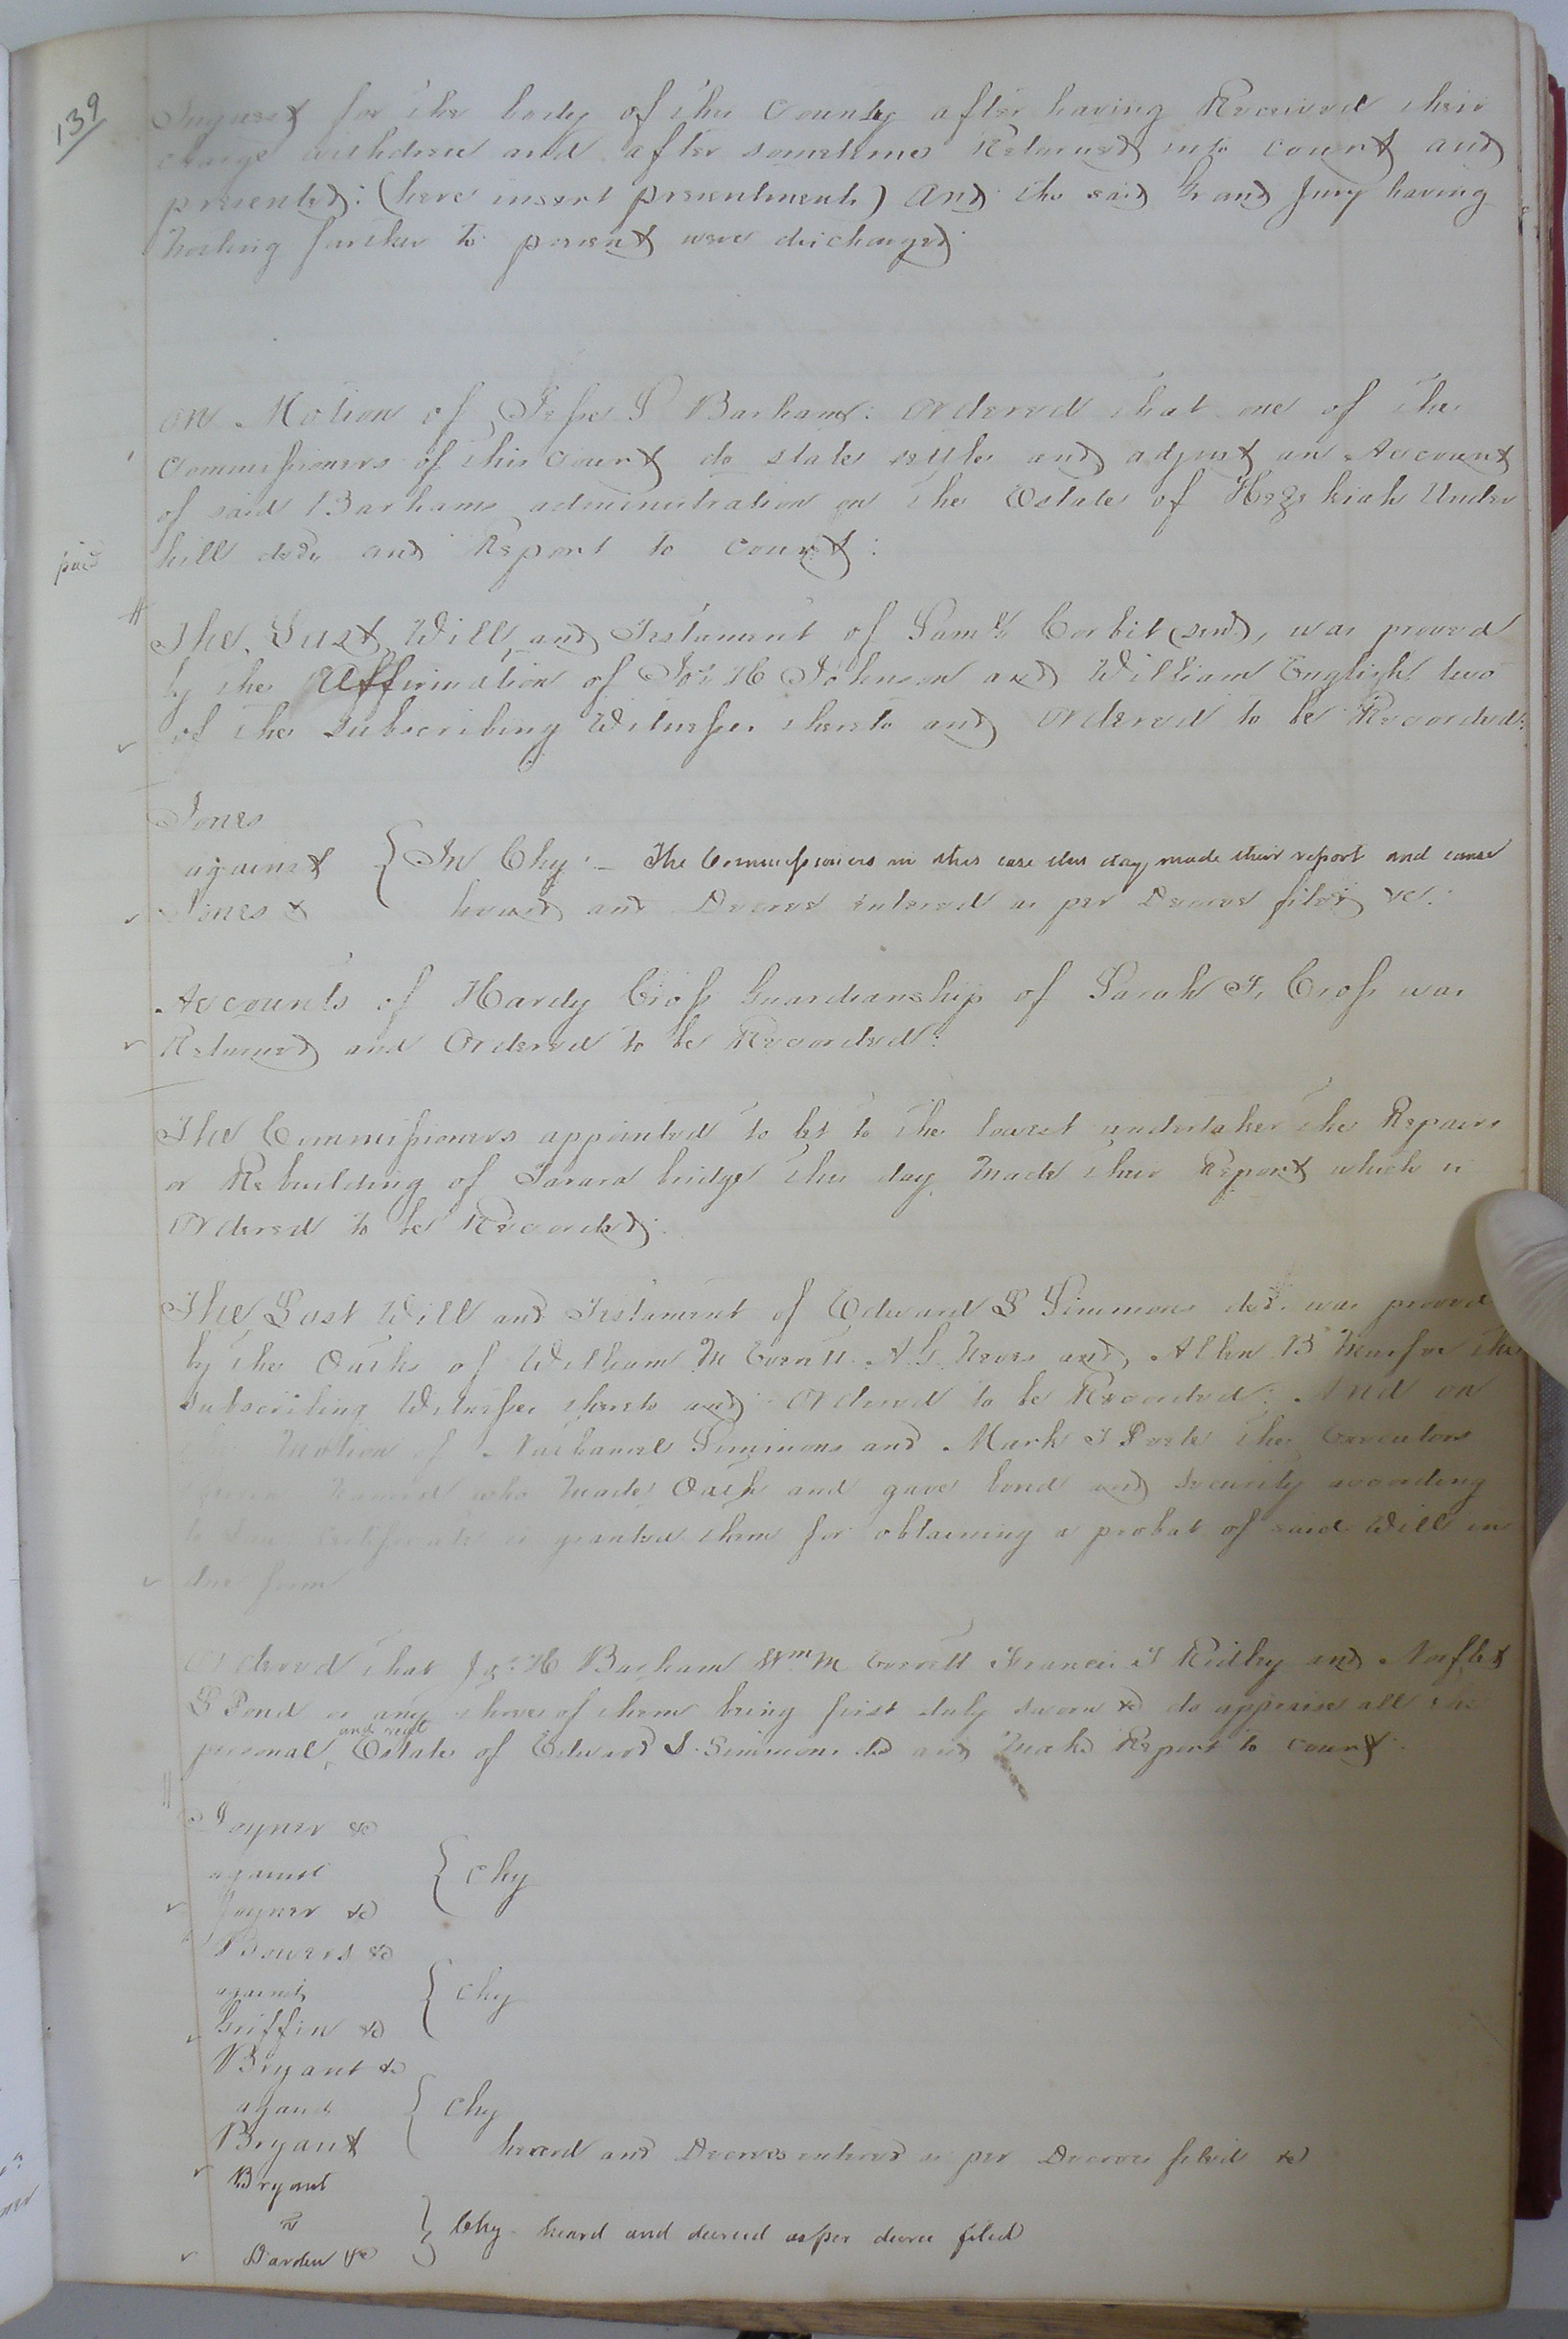 139
Inquest for the body of this County after having Received their
charge withdrew and after sometime Returned into court and
presented: (here insert presentments) And the said Grand Jury having
Nothing further to present were discharged.
On Motion of Jesse S Barham: Ordered that one of the
Commissioners of this Court do state settle and adjust an Account
of said Barhams administration on the Estate of Hezekiah Under
hill decd. and Report to court:
paid
The Last Will and Testament of Saml. Corbit (senr), was proved
by the Affirmation of Jos. H Johnson and William English two
of the subscribing Witnesses thereto and ordered to be Recorded:
Jones
against
Jones &
In Chy: - The Commissioners in this case this day made their report and cause
heard and Decree entered as per Decree filed &c.
Accounts of Hardy Cross Guardianship of Sarah F. Cross was
Returned and Ordered to be Recorded:
The Commissioners appointed to let to the lowest undertaker the Repairs
or Rebuilding of Tarara bridge this day Made their Report which is
Ordered to be Recorded:
The Last Will and Testament of Edward S Simmons decd. was proved
by the Oaths of William M Everett A. G. and Allen B the
subscribing Witnesses thereto and Ordered to be Recorded: And on
Motion of Nathaniel Simmons and Mark the Executors
Named who Made Oath and gave bond and Security according
to law Certificate is granted them for obtaining a probat of said Will in
due form
Ordered that Jas. H Barham Wm M Everett Francis T Ridley and Norflet
S Pond or any three of them being first duly sworn &c do appraise all the
personal and real Estate of Edward S. Simmons decd and Make Report to court:
Joyner &c
against
Joyner &c
Chy
Bowers &c
against
Griffin &c
Chy
Bryant &c
against
Bryant
Chy
heard and Decree entered as per Decree filed &c
Bryant
vs
Darden &c
Chy - heard and decreed as per decree filed